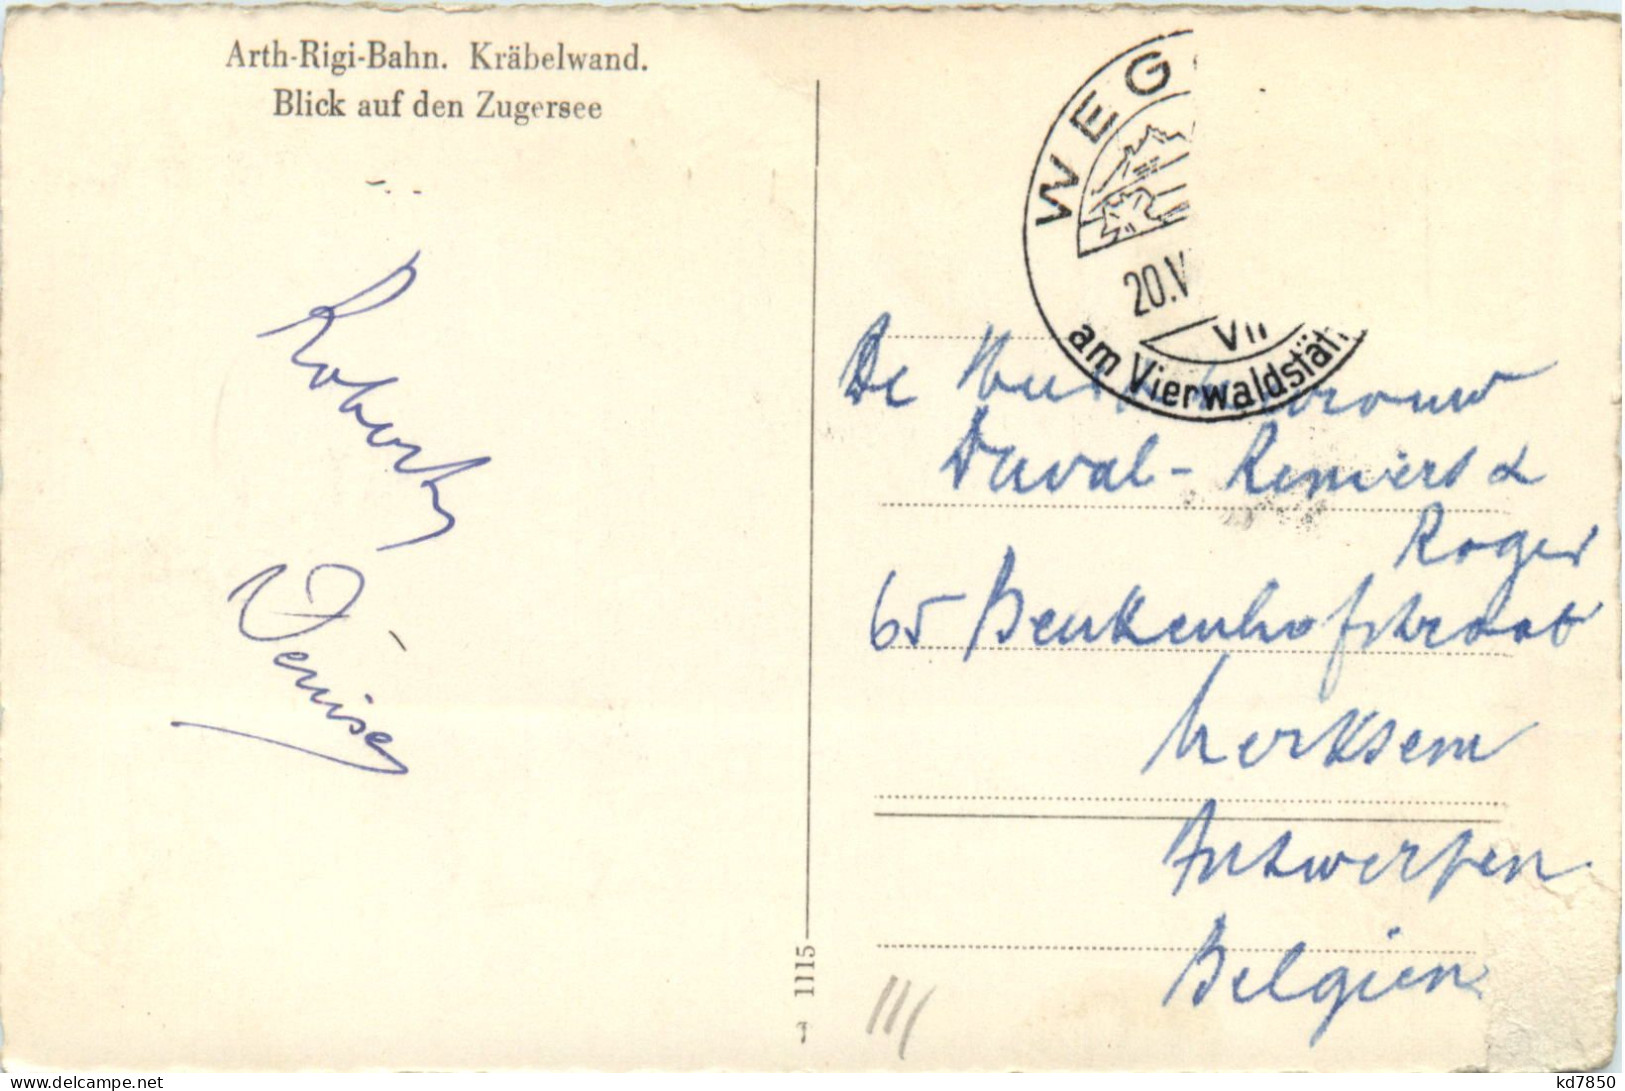 Arth-Rigi-Bahn. Kräbelwand.
Blick auf den Zugersee
Robert
Denise
1115
WEG
20.V
VII
am Vierwaldstät
De
Duval - Renvers &
Roger
65 Beukenhofstraat
Merksem
Antwerpen
Belgien
kd7850